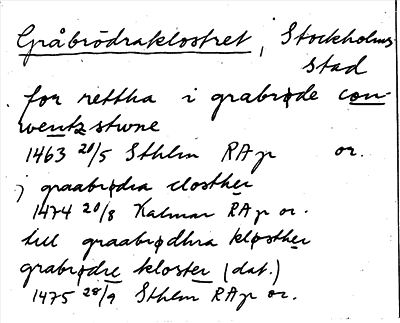 Gråbrödraklostret, Stockholms
stad
for rettha i grabrøde con-
wentz stwne
1463 20/5 Sthlm RAp or.
j graabrødra closther
1474 20/8 Kalmar RAp or.
til graabrødhra kløsther
grabrødre kloster (dat.)
1475 28/9 Sthlm RAp or.